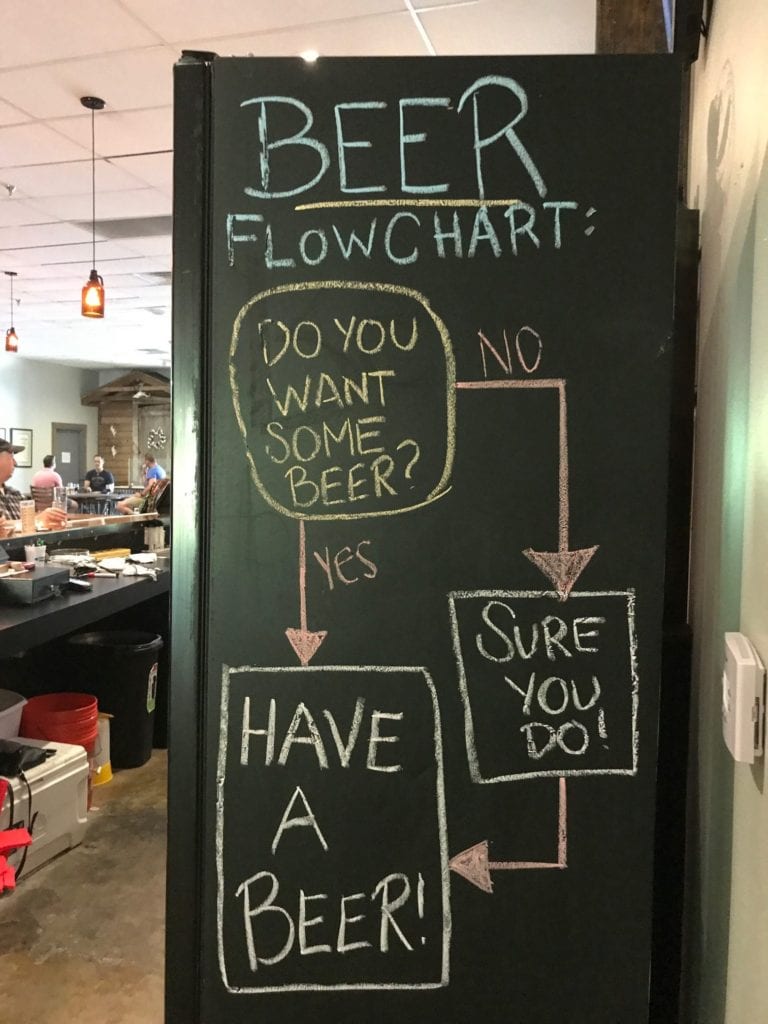 BEER
FLOWCHART:
DO YOU
WANT
SOME
BEER?
NO
YES
SURE
YOU
DO!
HAVE
A
BEER!